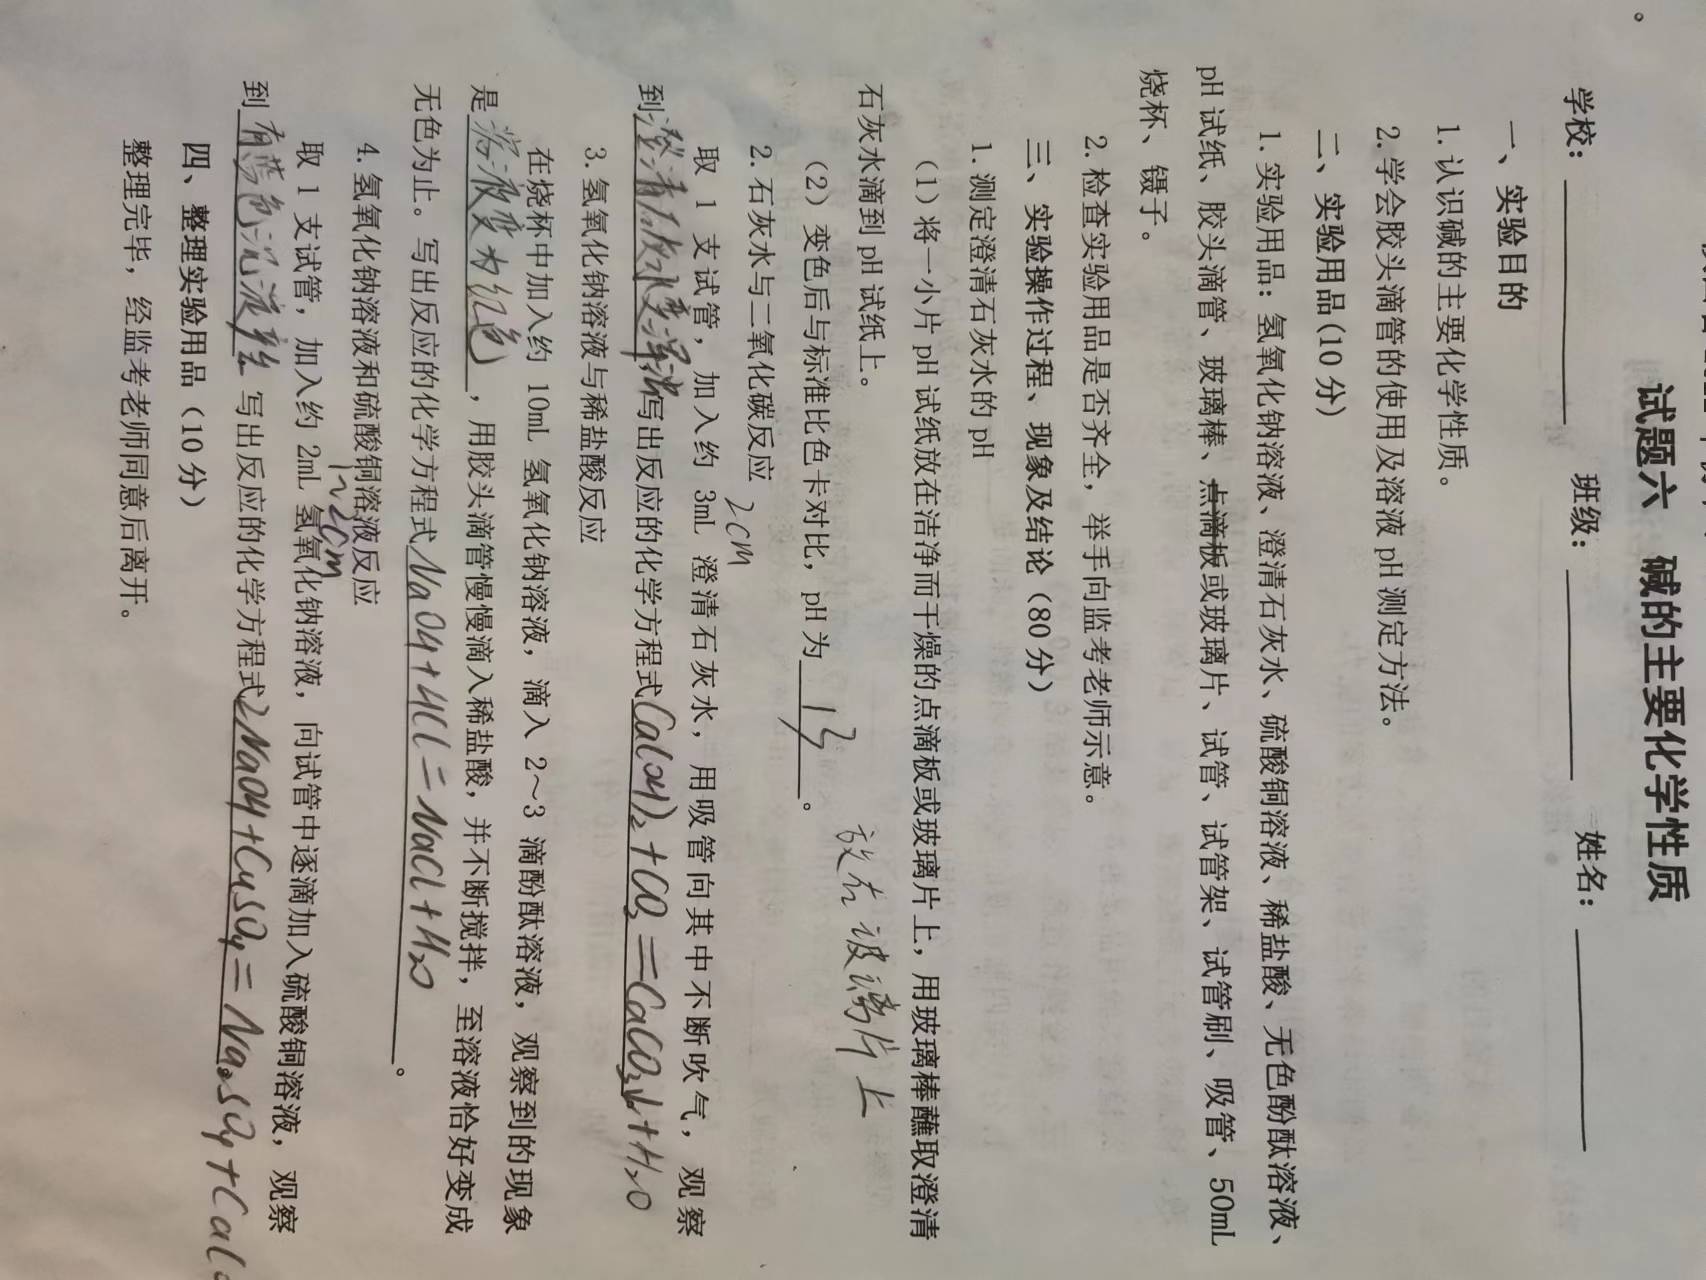 试题六 碱的主要化学性质
学校： 班级： 姓名：
一、实验目的
1. 认识碱的主要化学性质。
2. 学会胶头滴管的使用及溶液 pH 测定方法。
二、实验用品(10 分)
1. 实验用品：氢氧化钠溶液、澄清石灰水、硫酸铜溶液、稀盐酸、无色酚酞溶液、
pH 试纸、胶头滴管、玻璃棒、点滴板或玻璃片、试管、试管架、试管刷、吸管、50mL
烧杯、镊子。
2. 检查实验用品是否齐全，举手向监考老师示意。
三、实验操作过程、现象及结论（80 分）
1. 测定澄清石灰水的 pH
（1）将一小片 pH 试纸放在洁净而干燥的点滴板或玻璃片上，用玻璃棒蘸取澄清
石灰水滴到 pH 试纸上。
放在玻璃片上
（2）变色后与标准比色卡对比，pH 为 13 。
2. 石灰水与二氧化碳反应
2cm
取 1 支试管，加入约 3mL 澄清石灰水，用吸管向其中不断吹气，观察
到澄清石灰水变浑浊写出反应的化学方程式Ca(OH)₂+CO₂=CaCO₃↓+H₂O
3. 氢氧化钠溶液与稀盐酸反应
在烧杯中加入约 10mL 氢氧化钠溶液，滴入 2～3 滴酚酞溶液，观察到的现象
是溶液变为红色，用胶头滴管慢慢滴入稀盐酸，并不断搅拌，至溶液恰好变成
无色为止。写出反应的化学方程式NaOH+HCl=NaCl+H₂O。
4. 氢氧化钠溶液和硫酸铜溶液反应
1~2cm
取 1 支试管，加入约 2mL 氢氧化钠溶液，向试管中逐滴加入硫酸铜溶液，观察
到有蓝色沉淀产生 写出反应的化学方程式2NaOH+CuSO₄=Na₂SO₄+Cu(
四、整理实验用品（10 分）
整理完毕，经监考老师同意后离开。